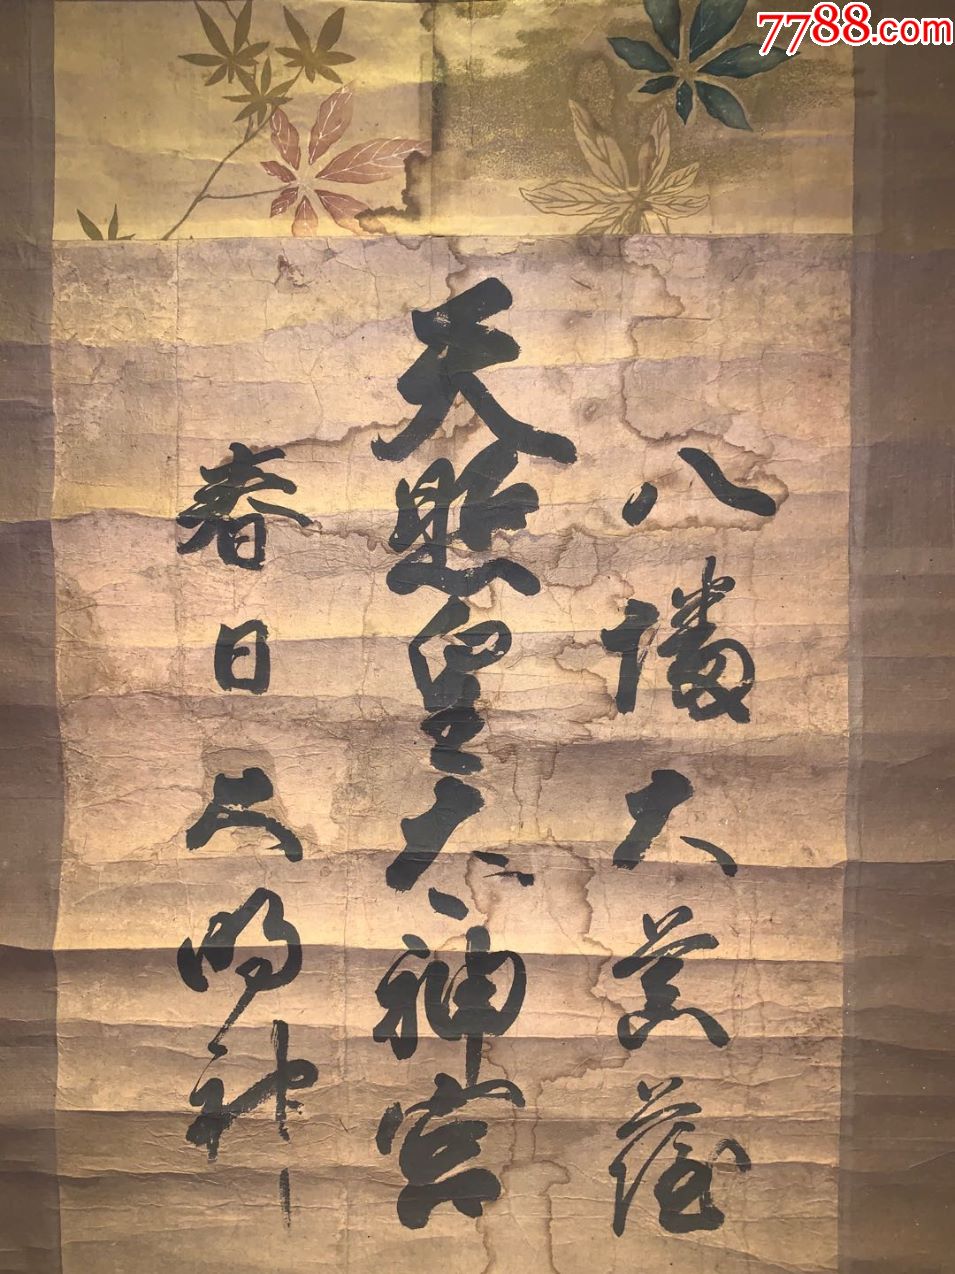 7788.com
八幡大菩薩
天照皇大神宮
春日大明神